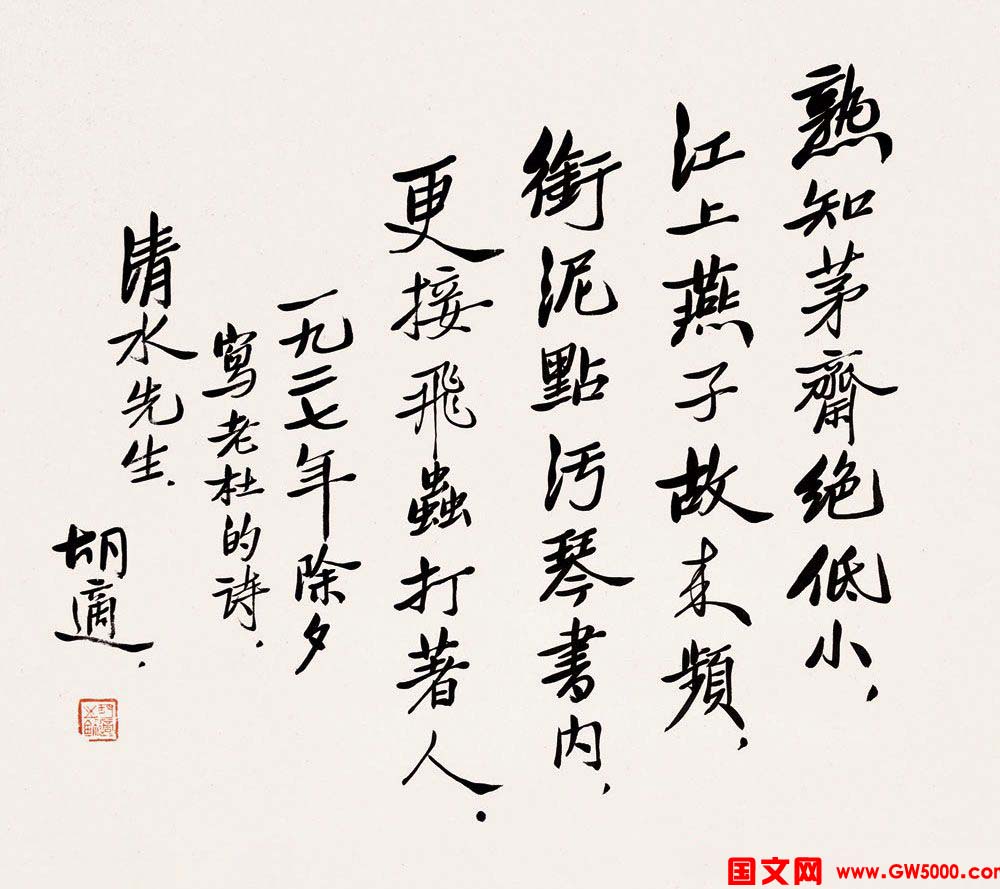 熟知茅齋绝低小，
江上燕子故来頻，
銜泥點汚琴書内，
更接飛蟲打著人．
一九二七年除夕
寫老杜的诗．
清水先生．
胡適．
国文网 www.GW5000.com